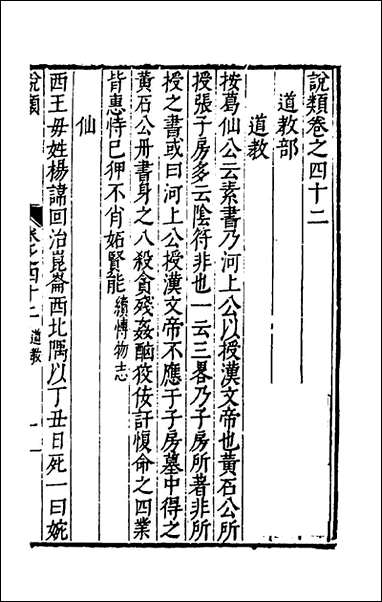 說類卷之四十二
道教部
道教
按葛仙公云素書乃河上公以授漢文帝也黃石公所
授張子房多云陰符非也一云三畧乃子房所著非所
授之書或曰河上公授漢文帝不應于子房墓中得之
黃石公冊書身之八殺貪殘姦酗狡佞訐愎命之四業
皆惠恃己狎不肖妬賢能續博物志
仙
西王毋姓楊諱回治崑崙西北隅以丁丑日死一曰婉
說類
卷之四十二 道教
一